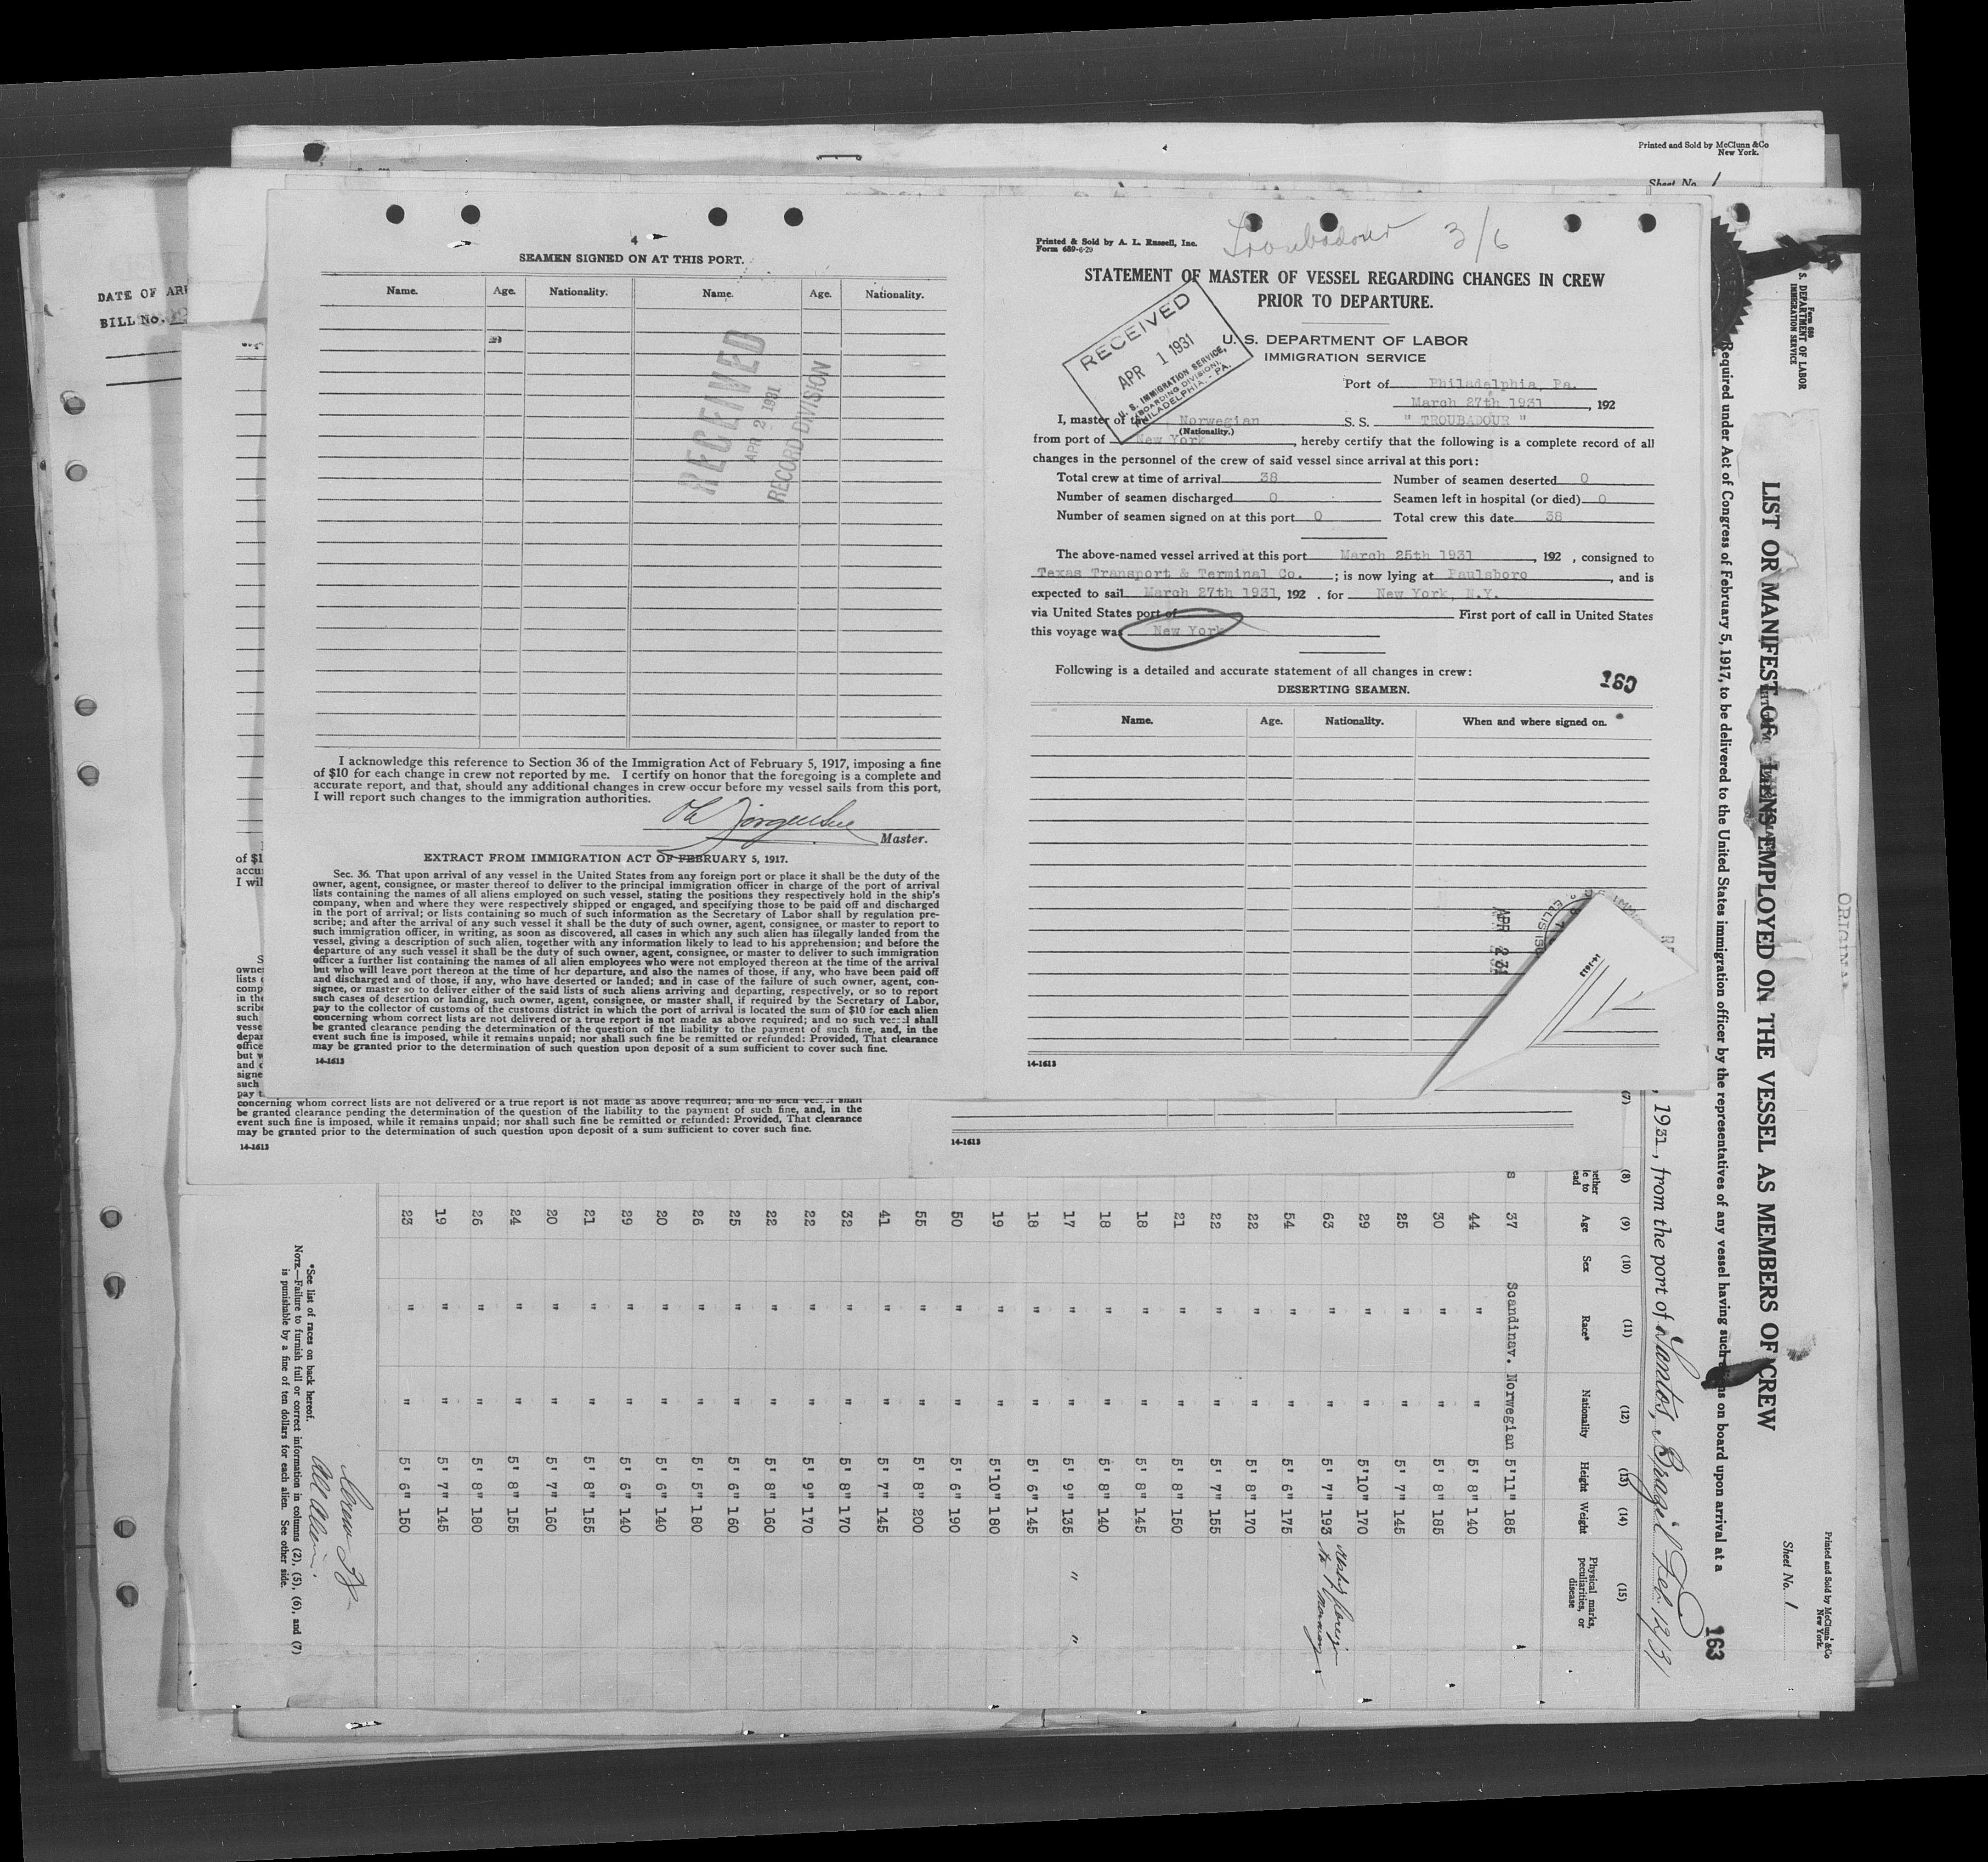 Printed and Sold by McClunn &Co
New York.
Sheet No. 1
DATE OF
BILL No.
4
SEAMEN SIGNED ON AT THIS PORT.
Name. Age. Nationality. Name. Age. Nationality.
RECEIVED
APR 2 1931
RECORD DIVISION
I acknowledge this reference to Section 36 of the Immigration Act of February 5, 1917, imposing a fine
of $10 for each change in crew not reported by me. I certify on honor that the foregoing is a complete and
accurate report, and that, should any additional changes in crew occur before my vessel sails from this port,
I will report such changes to the immigration authorities.
Master.
EXTRACT FROM IMMIGRATION ACT OF FEBRUARY 5, 1917.
Sec. 36. That upon arrival of any vessel in the United States from any foreign port or place it shall be the duty of the
owner, agent, consignee, or master thereof to deliver to the principal immigration officer in charge of the port of arrival
lists containing the names of all aliens employed on such vessel, stating the positions they respectively hold in the ship's
company, when and where they were respectively shipped or engaged, and specifying those to be paid off and discharged
in the port of arrival; or lists containing so much of such information as the Secretary of Labor shall by regulation pre-
scribe; and after the arrival of any such vessel it shall be the duty of such owner, agent, consignee, or master to report to
such immigration officer, in writing, as soon as discovered, all cases in which any such alien has illegally landed from the
vessel, giving a description of such alien, together with any information likely to lead to his apprehension; and before the
departure of any such vessel it shall be the duty of such owner, agent, consignee, or master to deliver to such immigration
officer a further list containing the names of all alien employees who were not employed thereon at the time of the arrival
but who will leave port thereon at the time of her departure, and also the names of those, if any, who have been paid off
and discharged and of those, if any, who have deserted or landed; and in case of the failure of such owner, agent, con-
signee, or master so to deliver either of the said lists of such aliens arriving and departing, respectively, or so to report
such cases of desertion or landing, such owner, agent, consignee, or master shall, if required by the Secretary of Labor,
pay to the collector of customs of the customs district in which the port of arrival is located the sum of $10 for each alien
concerning whom correct lists are not delivered or a true report is not made as above required; and no such vessel shall
be granted clearance pending the determination of the question of the liability to the payment of such fine, and, in the
event such fine is imposed, while it remains unpaid; nor shall such fine be remitted or refunded: Provided, That clearance
may be granted prior to the determination of such question upon deposit of a sum sufficient to cover such fine.
14-1613
Troubadour 3/6
Printed & Sold by A. L. Russell, Inc.
Form 689-6-29
STATEMENT OF MASTER OF VESSEL REGARDING CHANGES IN CREW
PRIOR TO DEPARTURE.
U. S. DEPARTMENT OF LABOR
IMMIGRATION SERVICE
RECEIVED
APR 1 1931
U. S. IMMIGRATION SERVICE,
(BOARDING DIVISION)
PHILADELPHIA, - PA.
Port of Philadelphia, Pa.
March 27th 1931, 192
I, master of the Norwegian S. S. " TROUBADOUR "
(Nationality.)
from port of New York, hereby certify that the following is a complete record of all
changes in the personnel of the crew of said vessel since arrival at this port:
Total crew at time of arrival 38 Number of seamen deserted 0
Number of seamen discharged 0 Seamen left in hospital (or died) 0
Number of seamen signed on at this port 0 Total crew this date 38
The above-named vessel arrived at this port March 25th 1931, 192 , consigned to
Texas Transport & Terminal Co. ; is now lying at Paulsboro, and is
expected to sail March 27th 1931, 192 . for New York, N.Y.
via United States port of First port of call in United States
this voyage was New York
Following is a detailed and accurate statement of all changes in crew:
160
DESERTING SEAMEN.
Name. Age. Nationality. When and where signed on.
APR 2 31
14-1613
concerning whom correct lists are not delivered or a true report is not made as above required; and no such vessel shall
be granted clearance pending the determination of the question of the liability to the payment of such fine, and, in the
event such fine is imposed, while it remains unpaid; nor shall such fine be remitted or refunded: Provided, That clearance
may be granted prior to the determination of such question upon deposit of a sum sufficient to cover such fine.
14-1613
14-1613
Printed and Sold by McClunn &Co
New York.
Sheet No. 1
163
Form 680
S. DEPARTMENT OF LABOR
IMMIGRATION SERVICE
ORIGINAL
LIST OR MANIFEST OF ALIENS EMPLOYED ON THE VESSEL AS MEMBERS OF CREW
Required under Act of Congress of February 5, 1917, to be delivered to the United States immigration officer by the representatives of any vessel having such aliens on board upon arrival at a
, 1931, from the port of Santos, Brazil Feb. 12/31
(7) (8) (9) (10) (11) (12) (13) (14) (15)
Age Sex Race* Nationality Height Weight Physical marks, peculiarities, or disease
37 Scandinav. Norwegian 5'11" 185
44 " " 5' 8" 140
30 " " 5' 8" 185
25 " " 5' 7" 145
29 " " 5'10" 170
63 " " 5' 7" 193
54 " " 5' 6" 175
22 " " 5' 8" 170
22 " " 5' 7" 155
21 " " 5' 8" 150
18 " " 5' 8" 145
18 " " 5' 8" 140
17 " " 5' 9" 135 " "
18 " " 5' 6" 145
19 " " 5'10" 180
50 " " 5' 6" 190
55 " " 5' 8" 200
41 " " 5' 7" 145
32 " " 5' 8" 170
22 " " 5' 9" 170
22 " " 5' 8" 160
25 " " 5' 6" 160
26 " " 5' 5" 180
20 " " 5' 6" 140
29 " " 5' 6" 140
21 " " 5' 8" 155
20 " " 5' 7" 160
24 " " 5' 8" 155
26 " " 5' 8" 180
19 " " 5' 7" 145
23 " " 5' 6" 150
Crew 38
All Aliens.
*See list of races on back hereof.
NOTE.—Failure to furnish full or correct information in columns (2), (5), (6), and (7)
is punishable by a fine of ten dollars for each alien. See other side.